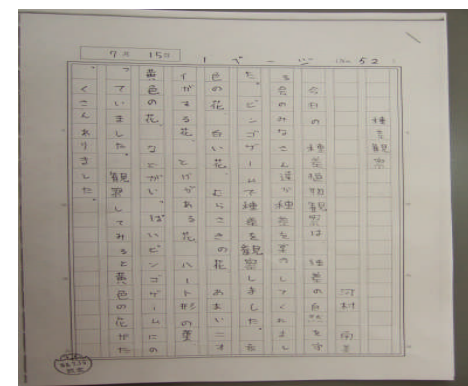 7月 15日
1ページ
52
種差観察
河村
今日の種差植物観察は 種差の自然を守
る会のみなさん達が種差を案内してくれまし
た。ビンゴゲームで種差を観察しました。赤
色の花 白い花 むらさきの花 あまいニオ
イがする花 とげがある花 ハート形の葉
黄色の花 などがいっぱいビンゴゲームにの
っていました。観察してみると黄色の花がた
くさんありました。